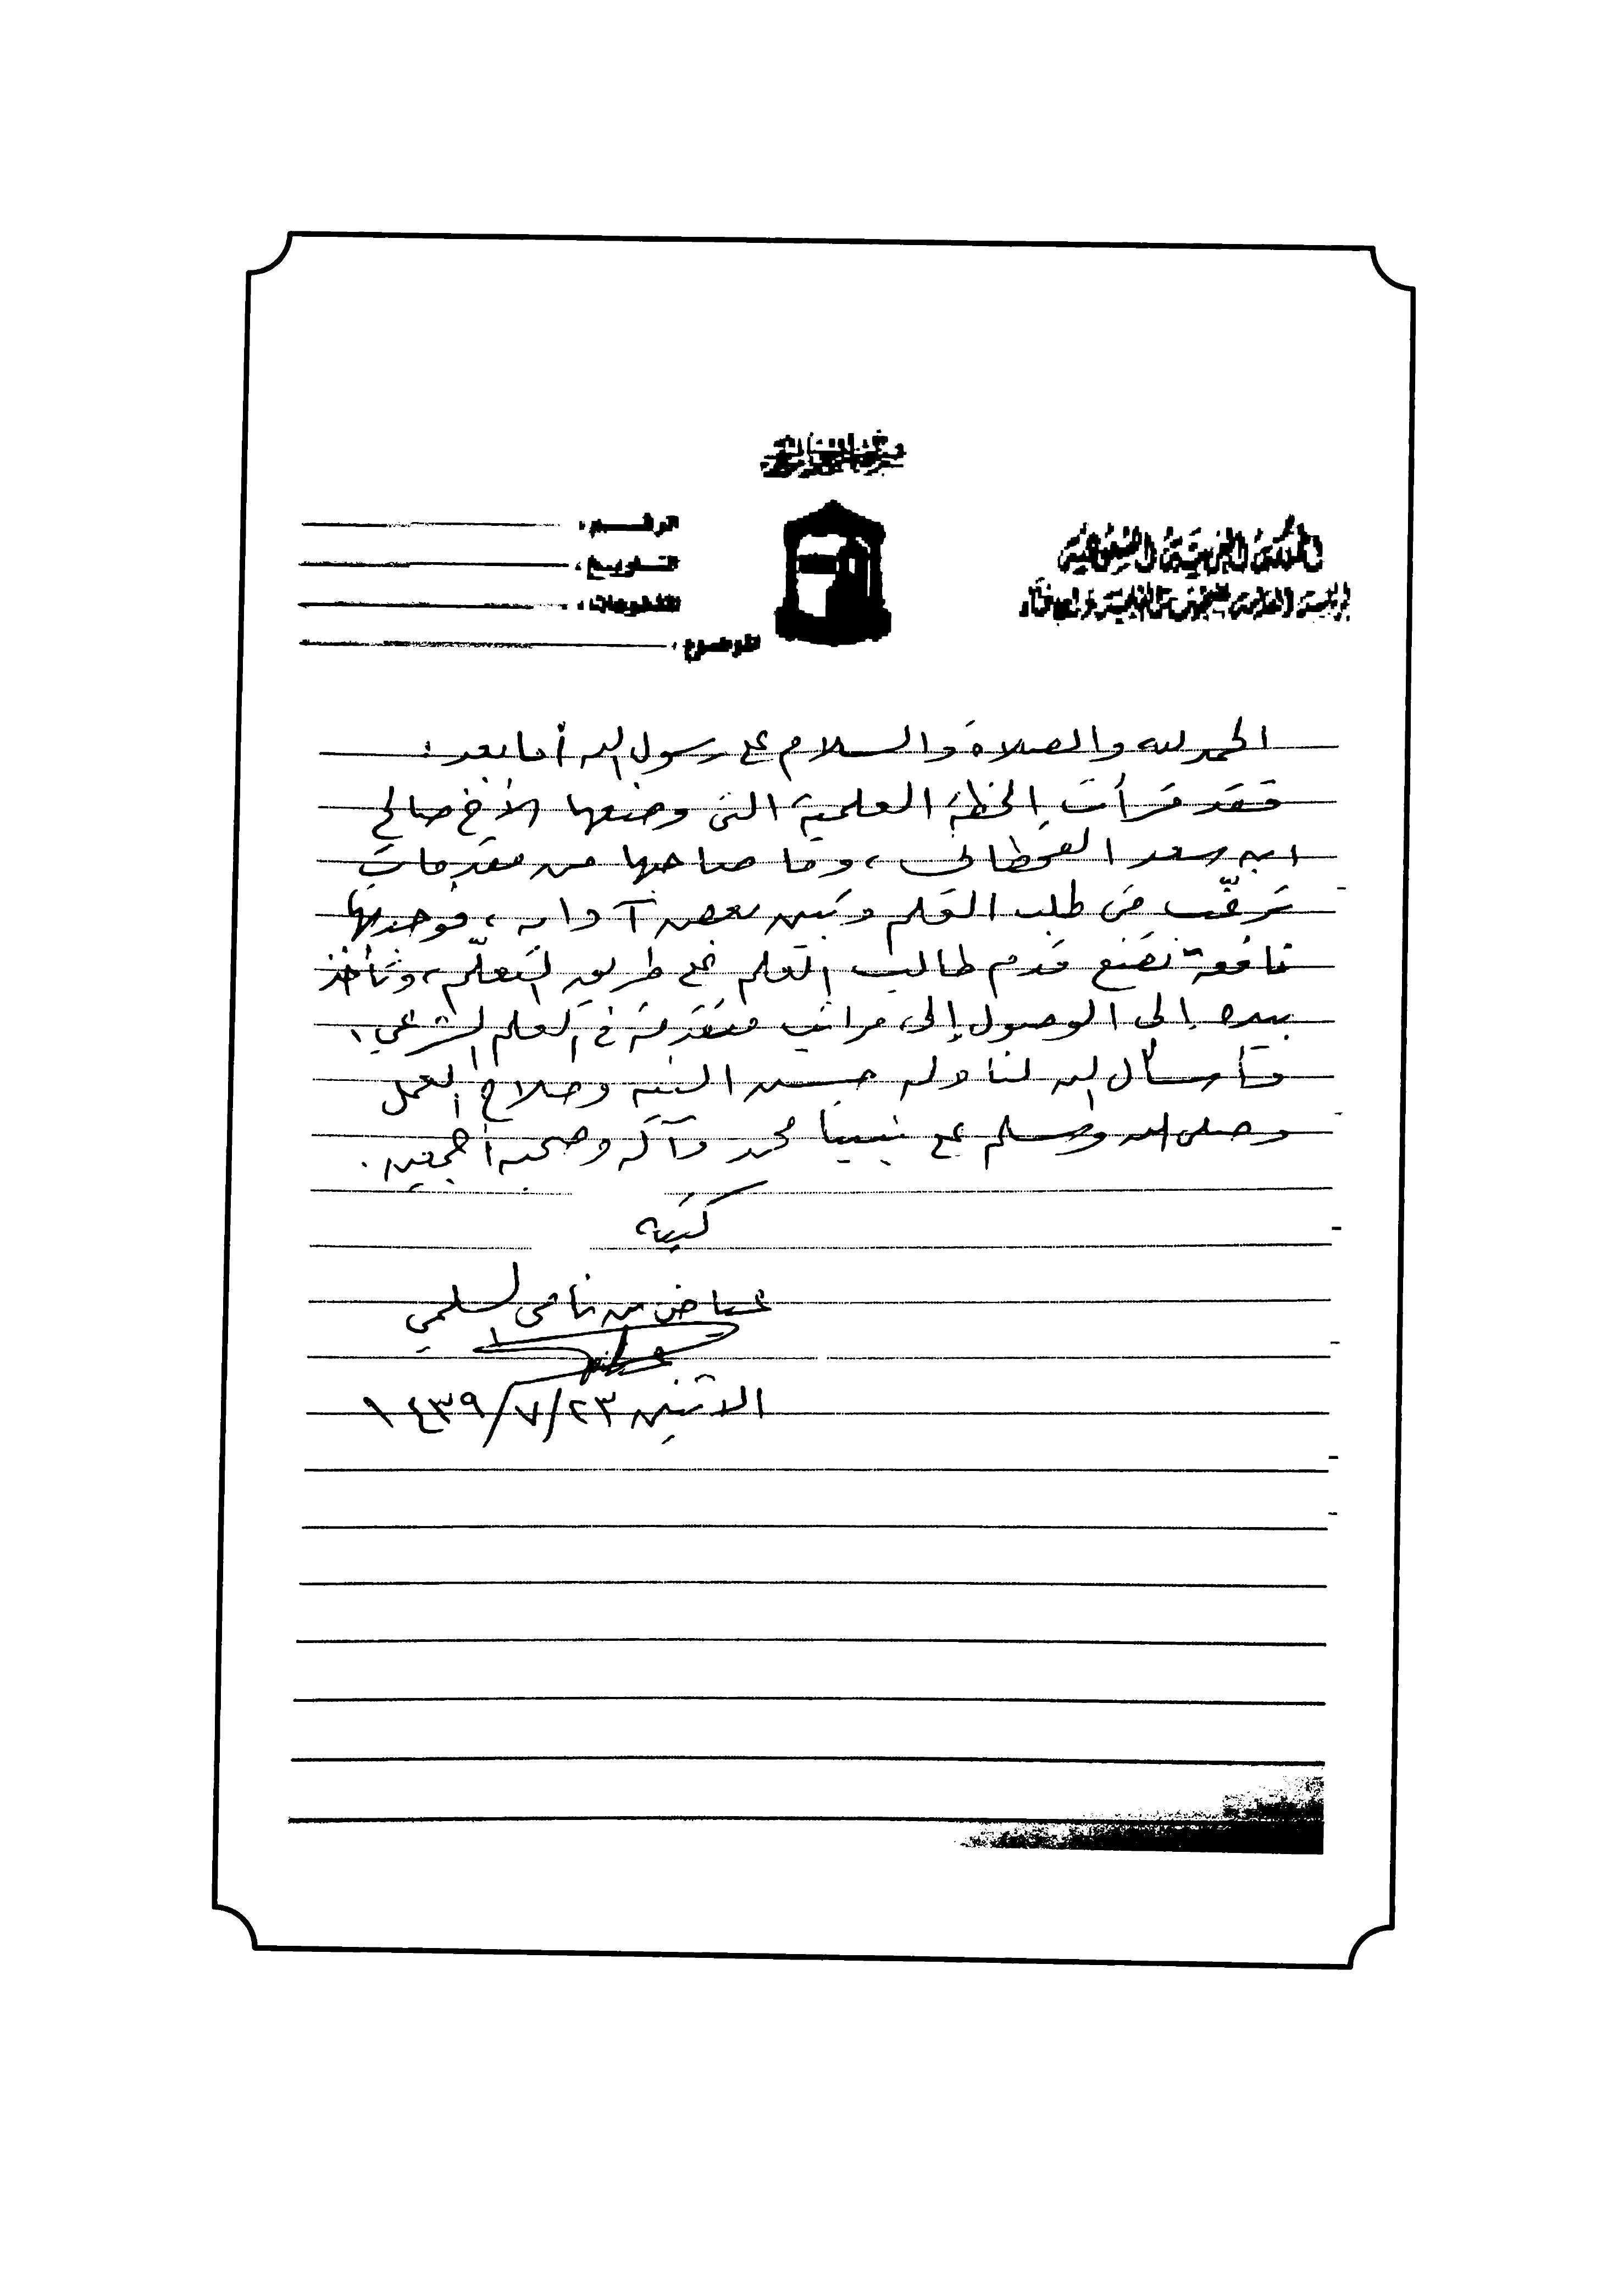 المملكة العربية السعودية
الرقـــم :
التـاريـخ :
المشفوعات :
الموضوع :
الحمد لله والصلاة والسلام على رسول الله أما بعد :
فقد قرأت الخطة العلمية التي وضعها الأخ صالح
ابن سعد القحطاني ، وما صاحبها من مقدمات
ترغّب في طلب العلم وتبين بعض آدابه ، فوجدتها
نافعة تضع قدم طالب العلم على طريق التعلّم ، وتأخذ
بيده إلى الوصول إلى مراتب متقدمة في العلم الشرعي .
وأسأل الله لنا وله حسن النية وصلاح العمل
وصلى الله وسلم على نبينا محمد وآله وصحبه أجمعين .
كتبه
عياض بن نامي السلمي
الاثنين ٢٣/٧/١٤٣٩